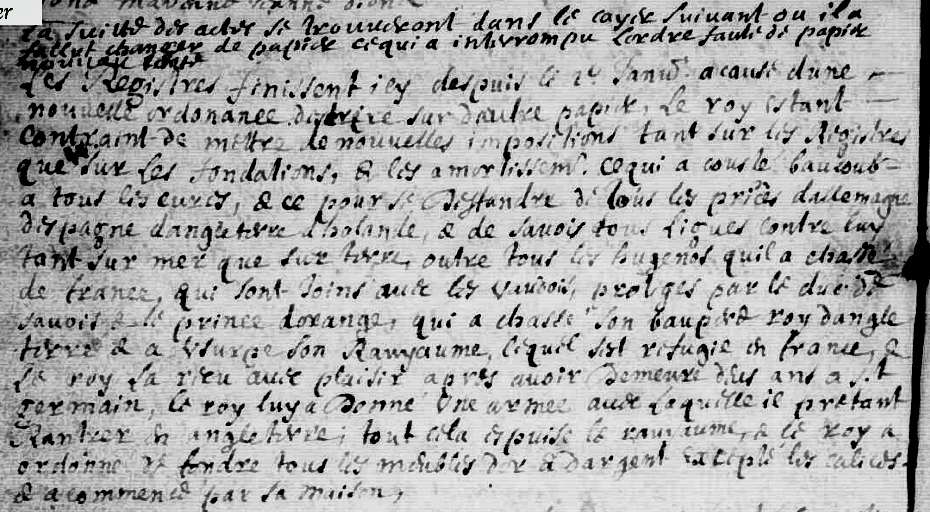 er
La suitte des actes se trouveront dans le cayer suivant ou il a
fallut changer de papier ce qui a interrompu lordre faute de papier
nouveau
Les Registres finissent icy despuis le Janv. a cause dune
nouvelle ordonance descrire sur dautre papier, Le roy estant
Contraint de mettre de nouvelles impositions tant sur les Registres
que sur les fondations, & les amortissem. ce qui a couste baucoub
a tous les eures, & ce pour se deffandre de tous les princes dallemagne
despagne dangleterre dholande, & de savois tous ligues contre luy
tant sur mer que sur terre, outre tous les hugenos quil a chassé
de france, qui sont joins avec les vaudois, proteges par le duc de
savois & le prince dorange, qui a chassé son baupere roy dangle
terre & a usurpe son Rawyaume, lequel sest refugie en france, &
Le roy la receu avec plaisir apres avoir Demeure deus ans a s.t
germain, le roy luy a Donne une armee avec laquelle il pretant
Rantrer en angleterre, tout cela espuise le rauyaume, & le roy a
ordonne de fondre tous les meubles dor & dargent excepte les calices
& a commence par sa maison,